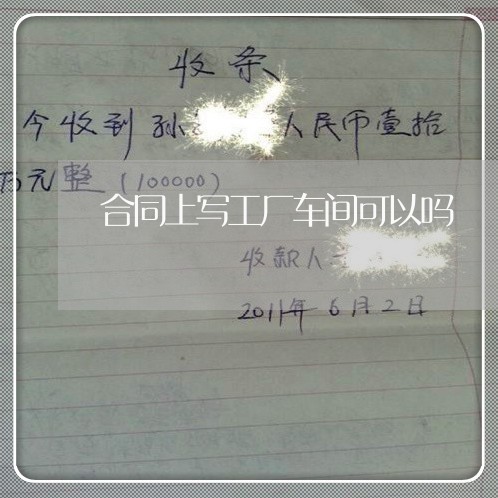 收条
今收到孙 人民币壹拾
万元整(100000)
合同上写工厂车间可以吗
收款人
2011年6月2日